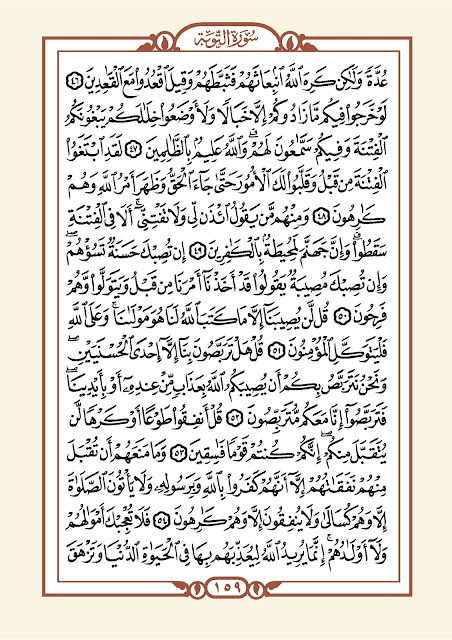 سُورَةُ التَّوْبَةِ
عُدَّةً وَلَٰكِن كَرِهَ ٱللَّهُ ٱنۢبِعَاثَهُمْ فَثَبَّطَهُمْ وَقِيلَ ٱقْعُدُوا۟ مَعَ ٱلْقَٰعِدِينَ ٤٦
لَوْ خَرَجُوا۟ فِيكُم مَّا زَادُوكُمْ إِلَّا خَبَالًا وَلَأَوْضَعُوا۟ خِلَٰلَكُمْ يَبْغُونَكُمُ
ٱلْفِتْنَةَ وَفِيكُمْ سَمَّٰعُونَ لَهُمْ ۗ وَٱللَّهُ عَلِيمٌۢ بِٱلظَّٰلِمِينَ ٤٧ لَقَدِ ٱبْتَغَوُا۟
ٱلْفِتْنَةَ مِن قَبْلُ وَقَلَّبُوا۟ لَكَ ٱلْأُمُورَ حَتَّىٰ جَآءَ ٱلْحَقُّ وَظَهَرَ أَمْرُ ٱللَّهِ وَهُمْ
كَٰرِهُونَ ٤٨ وَمِنْهُم مَّن يَقُولُ ٱئْذَن لِّى وَلَا تَفْتِنِّىٓ ۚ أَلَا فِى ٱلْفِتْنَةِ
سَقَطُوا۟ ۗ وَإِنَّ جَهَنَّمَ لَمُحِيطَةٌۢ بِٱلْكَٰفِرِينَ ٤٩ إِن تُصِبْكَ حَسَنَةٌ تَسُؤْهُمْ ۖ
وَإِن تُصِبْكَ مُصِيبَةٌ يَقُولُوا۟ قَدْ أَخَذْنَآ أَمْرَنَا مِن قَبْلُ وَيَتَوَلَّوا۟ وَّهُمْ
فَرِحُونَ ٥٠ قُل لَّن يُصِيبَنَآ إِلَّا مَا كَتَبَ ٱللَّهُ لَنَا هُوَ مَوْلَىٰنَا ۚ وَعَلَى ٱللَّهِ
فَلْيَتَوَكَّلِ ٱلْمُؤْمِنُونَ ٥١ قُلْ هَلْ تَرَبَّصُونَ بِنَآ إِلَّآ إِحْدَى ٱلْحُسْنَيَيْنِ ۖ
وَنَحْنُ نَتَرَبَّصُ بِكُمْ أَن يُصِيبَكُمُ ٱللَّهُ بِعَذَابٍ مِّنْ عِندِهِۦٓ أَوْ بِأَيْدِينَا ۖ
فَتَرَبَّصُوٓا۟ إِنَّا مَعَكُم مُّتَرَبِّصُونَ ٥٢ قُلْ أَنفِقُوا۟ طَوْعًا أَوْ كَرْهًا لَّن
يُتَقَبَّلَ مِنكُمْ ۖ إِنَّكُمْ كُنتُمْ قَوْمًا فَٰسِقِينَ ٥٣ وَمَا مَنَعَهُمْ أَن تُقْبَلَ
مِنْهُمْ نَفَقَٰتُهُمْ إِلَّآ أَنَّهُمْ كَفَرُوا۟ بِٱللَّهِ وَبِرَسُولِهِۦ وَلَا يَأْتُونَ ٱلصَّلَوٰةَ
إِلَّا وَهُمْ كُسَالَىٰ وَلَا يُنفِقُونَ إِلَّا وَهُمْ كَٰرِهُونَ ٥٤ فَلَا تُعْجِبْكَ أَمْوَٰلُهُمْ
وَلَآ أَوْلَٰدُهُمْ ۚ إِنَّمَا يُرِيدُ ٱللَّهُ لِيُعَذِّبَهُم بِهَا فِى ٱلْحَيَوٰةِ ٱلدُّنْيَا وَتَزْهَقَ
١٥٩